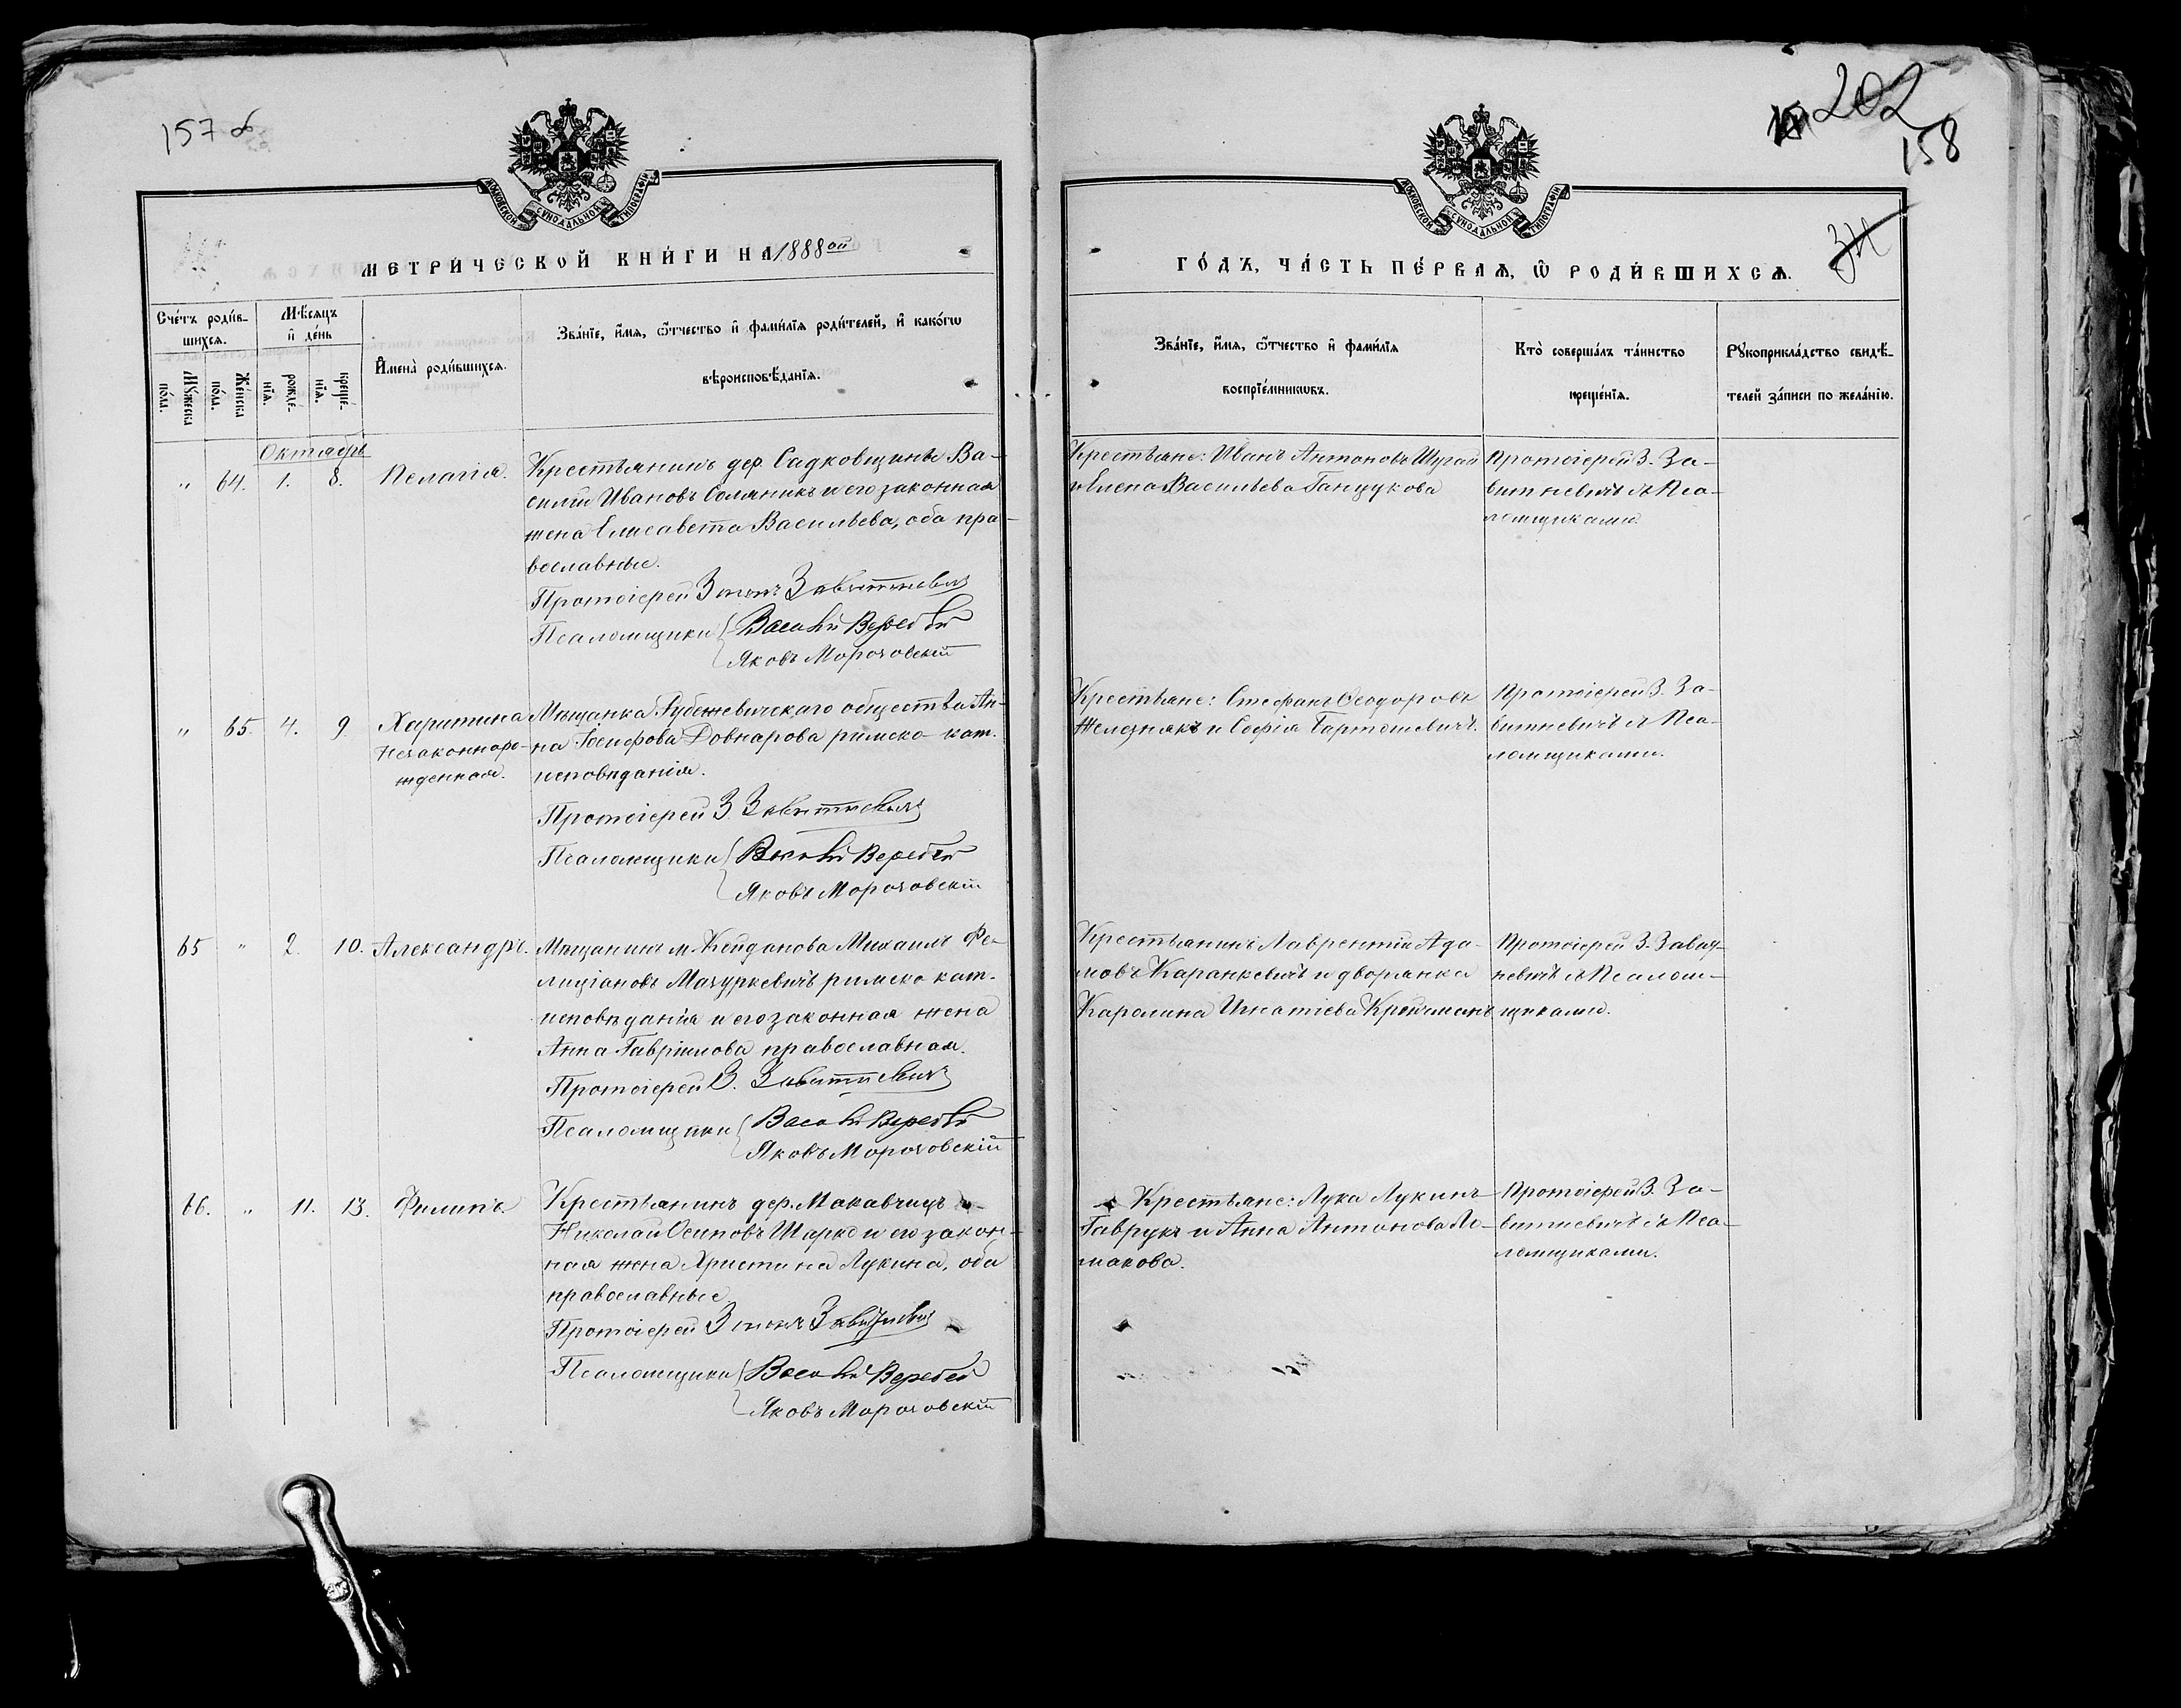 157 об
МОСКОВСКОЙ СѴНОДАЛЬНОЙ ТИПОГРАФІИ
МЕТРИ́ЧЕСКОЙ КНИ́ГИ НА 1888ой
Сче́тъ роди́в-
шихсѧ.
Мѣ́сѧцъ
и҆ де́нь
Мꙋ́жеска по́ла.
Же́нска по́ла.
рожде́-
нїѧ.
креще́-
нїѧ.
И҆мена̀ роди́вшихсѧ.
Зва́нїе, и҆́мѧ, ѻ҆́тчество и҆ фами́лїѧ роди́телей, и҆ како́гѡ
вѣроисповѣ́данїѧ.
Октябрь
„ 64. 1. 8. Пелагія. Крестьянинъ дер. Садковщины Ва-
силій Ивановъ Соляникъ и его законная
жена Елисавета Васильева, оба пра-
вославные.
Протоіерей Зинонъ Завитневичъ
Псаломщики Василій Веребей
Яковъ Морозовскій
„ 65. 4. 9 Харитина Мѣщанка Рубежевичскаго общества Ан-
Незаконноро- на Іосифова Довнарова римско-кат.
жденная. исповѣданія.
Протоіерей З. Завитневичъ
Псаломщики Василій Веребей
Яковъ Морозовскій
65 „ 2. 10. Александръ. Мѣщанинъ м. Койданова Михаилъ Фе-
лиціановъ Мазуркевичъ римско кат-
исповѣданія и его законная жена
Анна Гавріилова православная.
Протоіерей З. Завитневичъ
Псаломщики Василій Веребей
Яковъ Морозовскій
66. „ 11. 13. Филипъ. Крестьянинъ дер. Макавчицъ
Николай Осиповъ Шарко и его закон-
ная жена Христина Лукина, оба
православные
Протоіерей Зинонъ Завитневичъ
Псаломщики Василій Веребей
Яковъ Морозовскій
202
158
34
МОСКОВСКОЙ СѴНОДАЛЬНОЙ ТИПОГРАФІИ
ГО́ДЪ, ЧА́СТЬ ПЕ́РВАѦ, Ѽ РОДИ́ВШИХСѦ.
Зва́нїе, и҆́мѧ, ѻ҆́тчество и҆ фами́лїѧ
воспрїе́мникѡвъ.
Кто̀ соверша́лъ та́инство
креще́нїѧ.
Рꙋкоприкла́дство свидѣ́-
телей за́писи по жела́нїю.
Крестьяне: Иванъ Антоновъ Шугай
и Елена Васильева Ганцукова
Протоіерей З. За-
витневичъ съ Пса-
ломщиками.
Крестьяне: Стефанъ Ѳеодоровъ
Желязнякъ и Софія Бартошевичъ.
Протоіерей З. За-
витневичъ съ Пса-
ломщиками.
Крестьянинъ Лаврентій Ада-
мовъ Каранкевичъ и дворянка
Каролина Игнатіева
Протоіерей З. Завит-
невичъ съ Псалом-
щиками.
Крестьяне: Лука Лукинъ
Гаврукъ и Анна Антонова Ло-
макова.
Протоіерей З. За-
витневичъ съ Пса-
ломщиками.